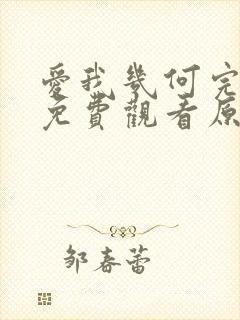 愛我幾何完
免費觀看原
鄒春蕾